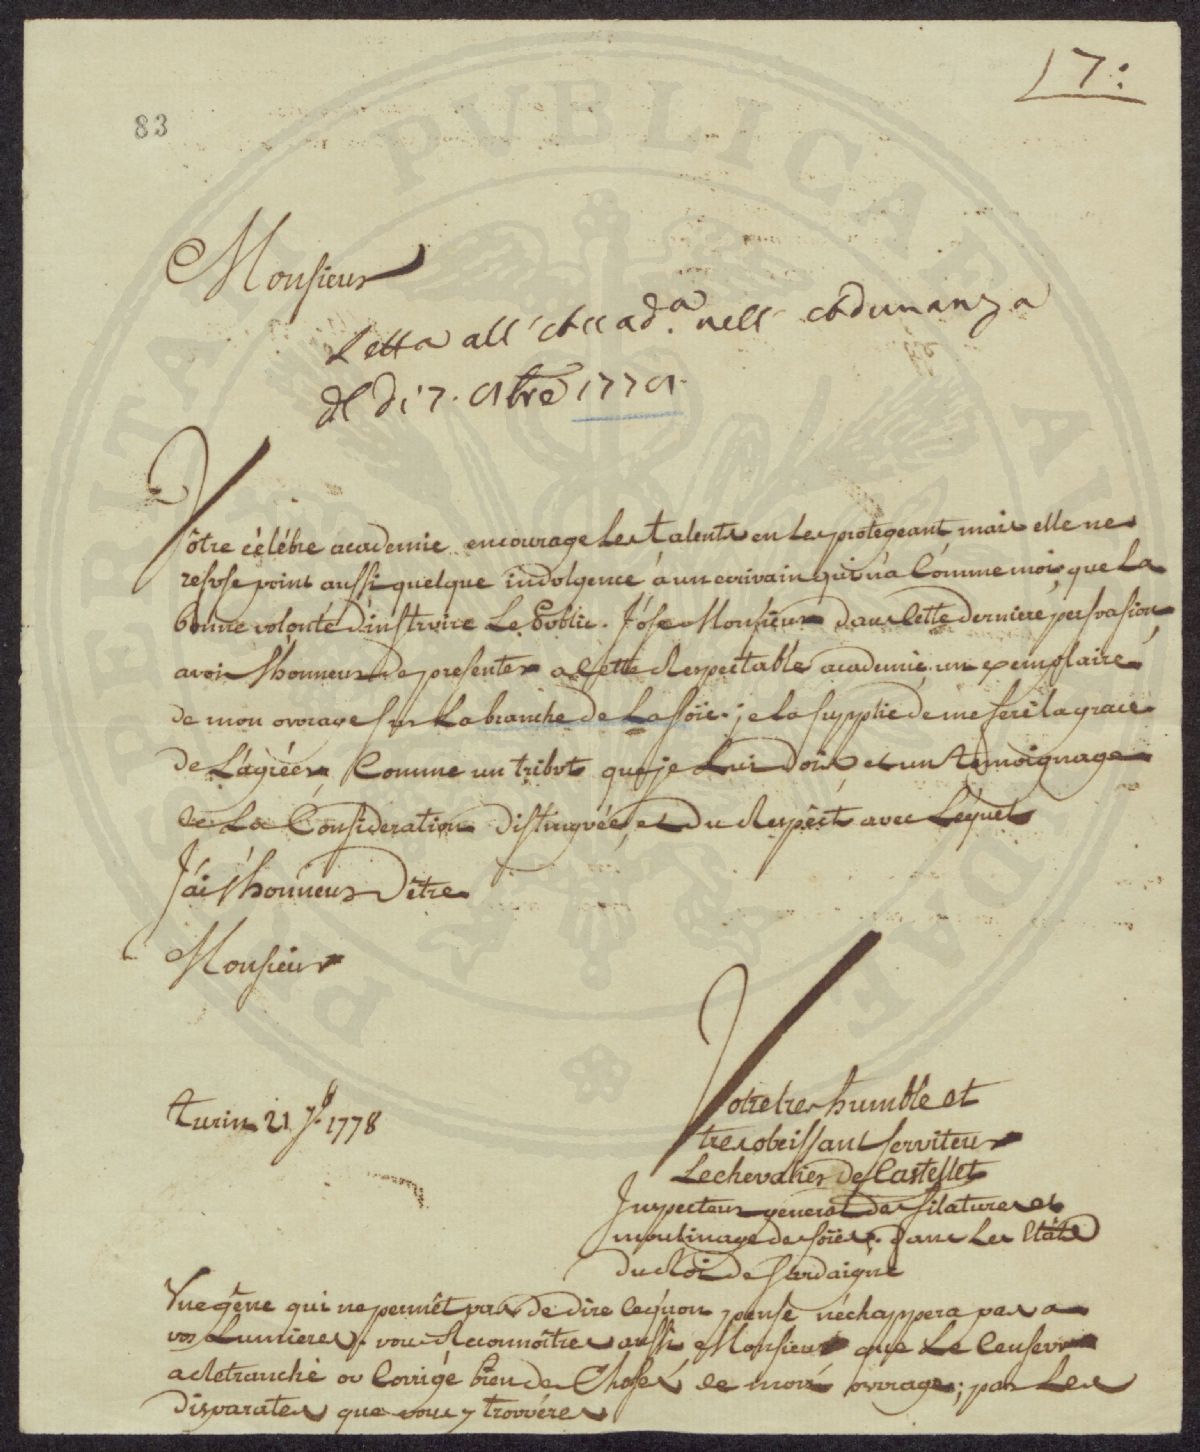 17:
83
Monsieur
Letta all' Accad.a nell' Adunanza
del dì 7. 9bre 1770.
Vôtre célébre academie encourage Les talents en Les protegeant mais elle ne
refuse point aussi quelque indulgence a un ecrivain qui n'a Comme moi, que La
bonne volonté d'instruire Le Public. J'ose Monsieur dans Cette derniere persuasion,
avoir l'honneur de presenter a Cette Respectable academie un exemplaire
de mon ovvrage sur La branche de La Soïe. je La supplie de me fere la grace
de L'agréer, Comme un tribut que je Lui Dois, et un temoignage
de La Consideration distinguée, et du Respect avec Lequel
J'ai l'honneur D'être
Monsieur
Votre tres humble et
tres obeissant serviteur
Le chevalier de Castellet
Inspecteur general des filatures et
moulinage de soies, dans Les Etats
du Roi de Sardaigne
turin 21 7.8 1778
Une gêne qui ne permêt pas de dire Ce qu'on pense n'échappera pas a
vos Lumieres. vous Reconnoîtres aussi Monsieur que Le Censeur
a Retranché ou Corrigé bien de Choses de mon ovvrage; par Les
disparates que vous y trouveres